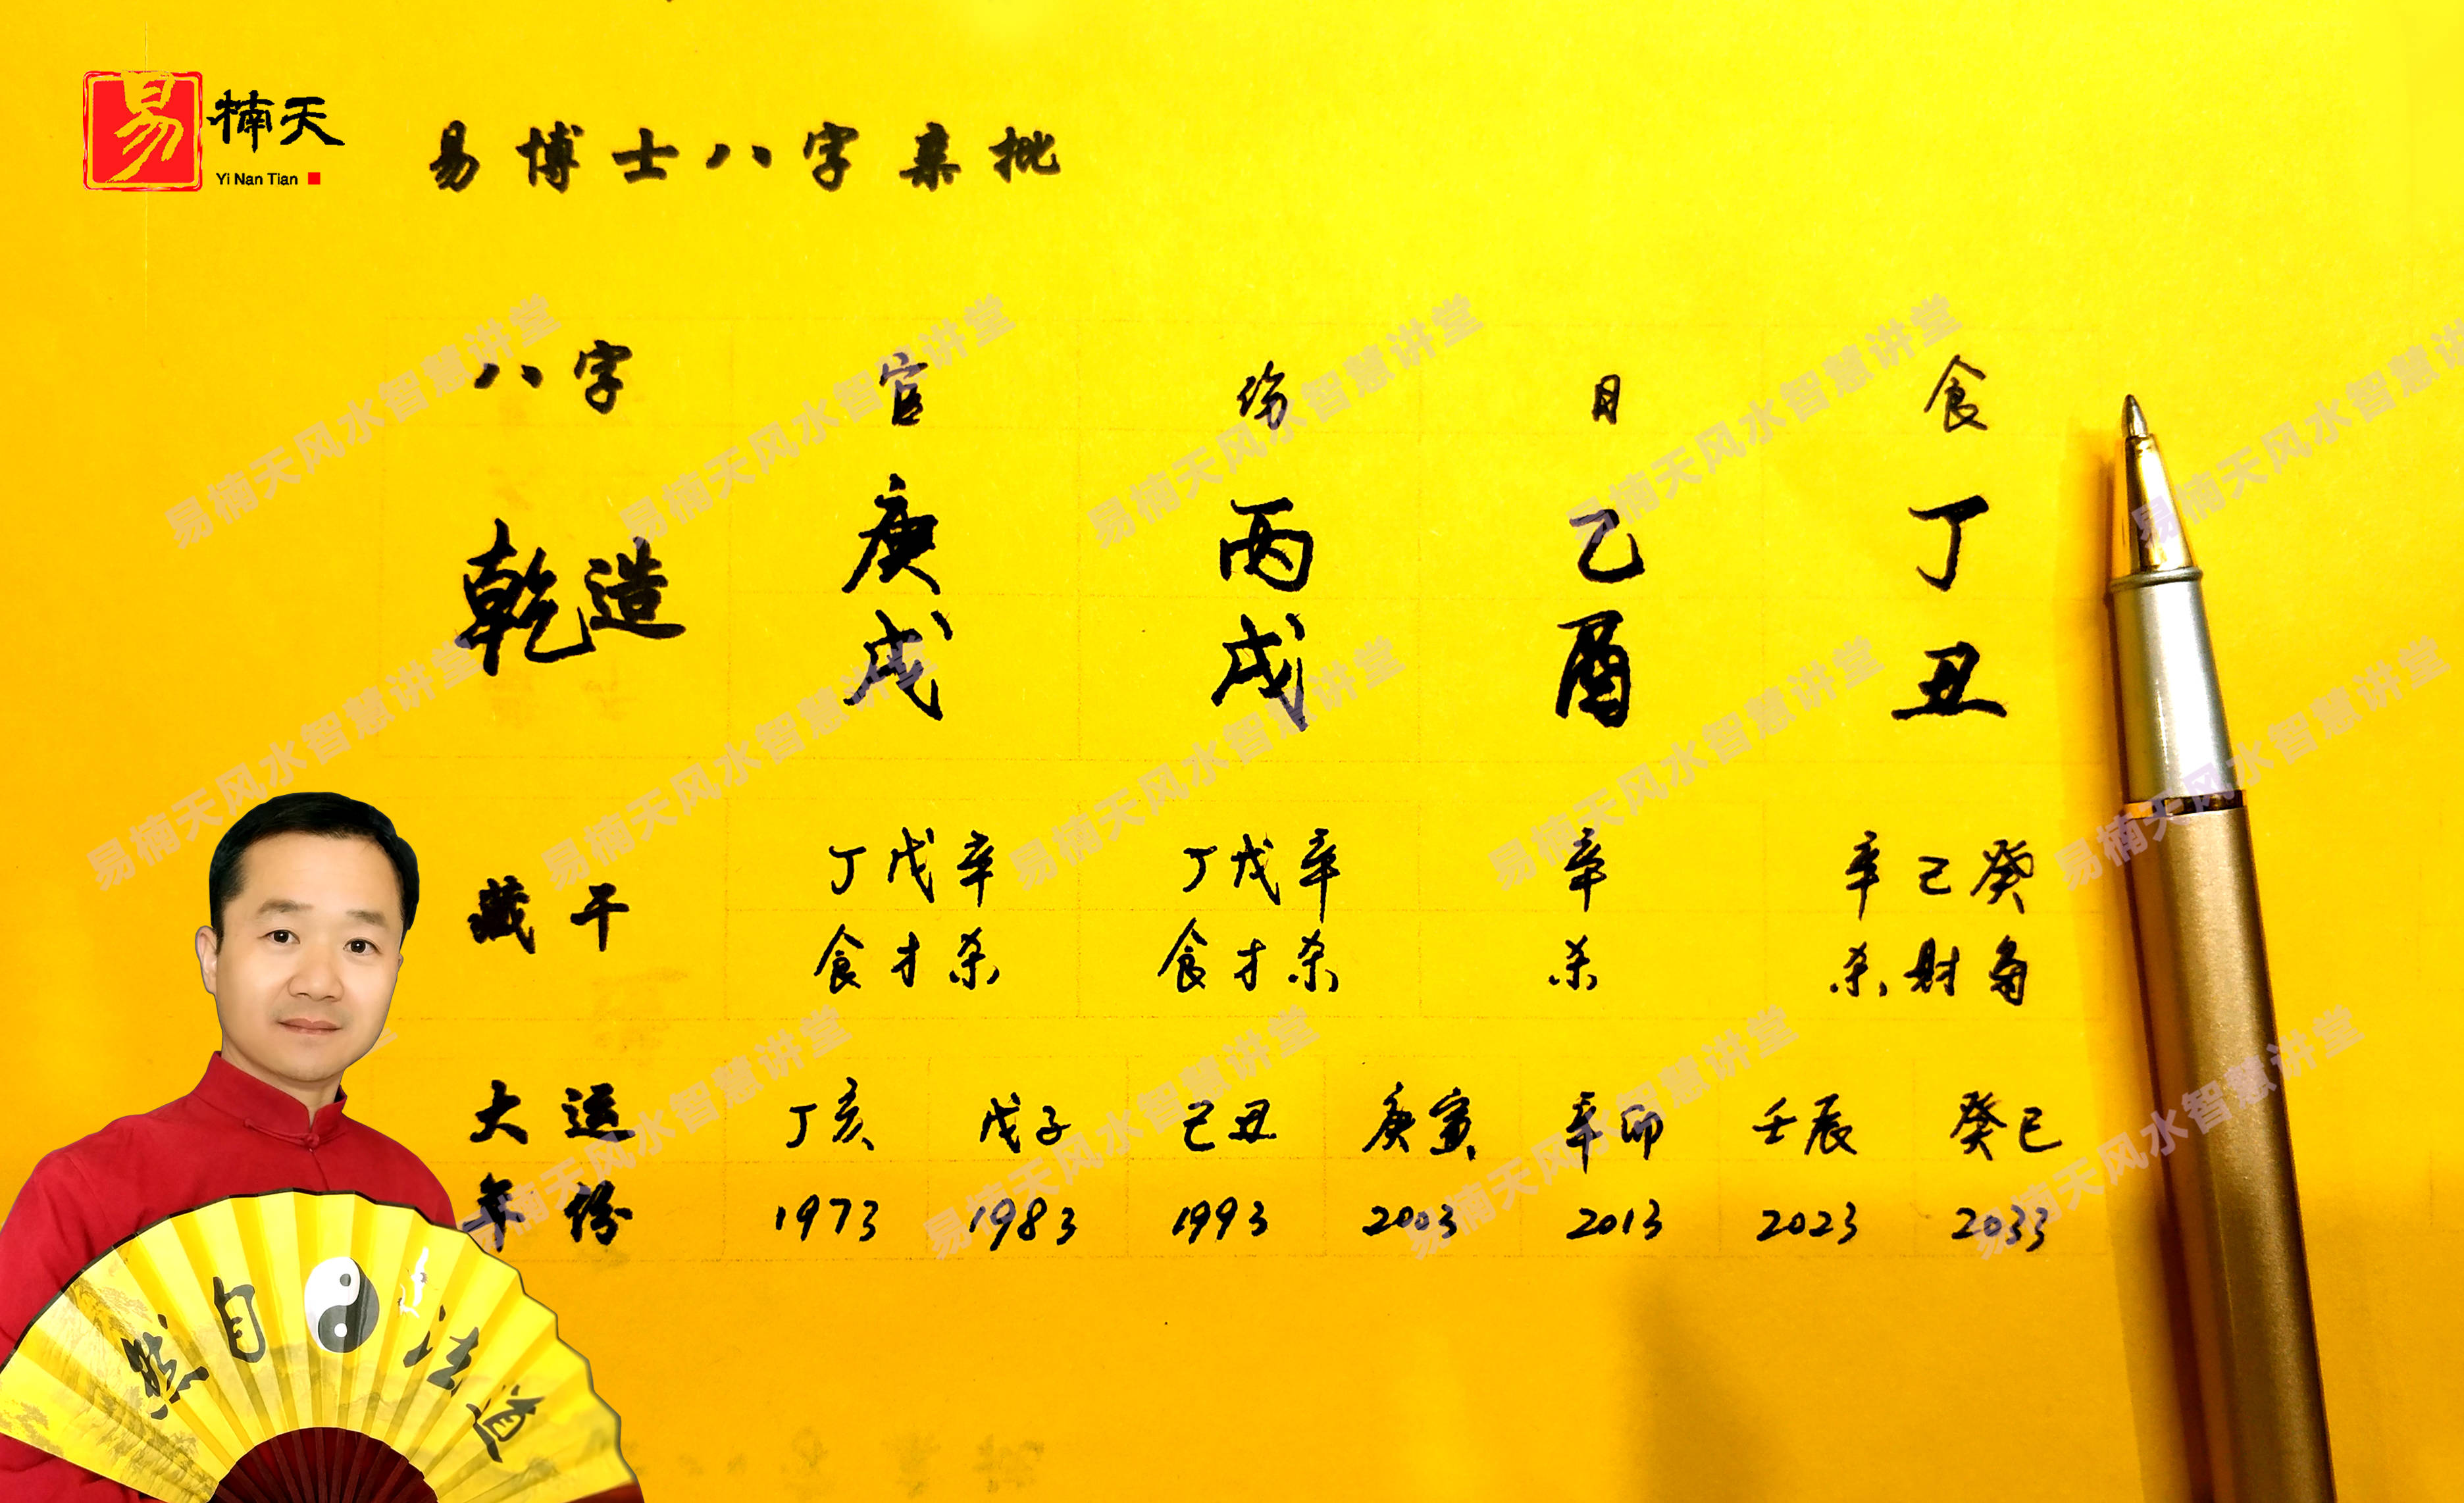 易 楠天
Yi Nan Tian
易博士八字亲批
八字 官 伤 日 食
乾造 庚 丙 乙 丁
戌 戌 酉 丑
藏干 丁戊辛 丁戊辛 辛 辛己癸
食才杀 食才杀 杀 杀财枭
大运 丁亥 戊子 己丑 庚寅 辛卯 壬辰 癸巳
年份 1973 1983 1993 2003 2013 2023 2033
道法自然
易楠天风水智慧讲堂